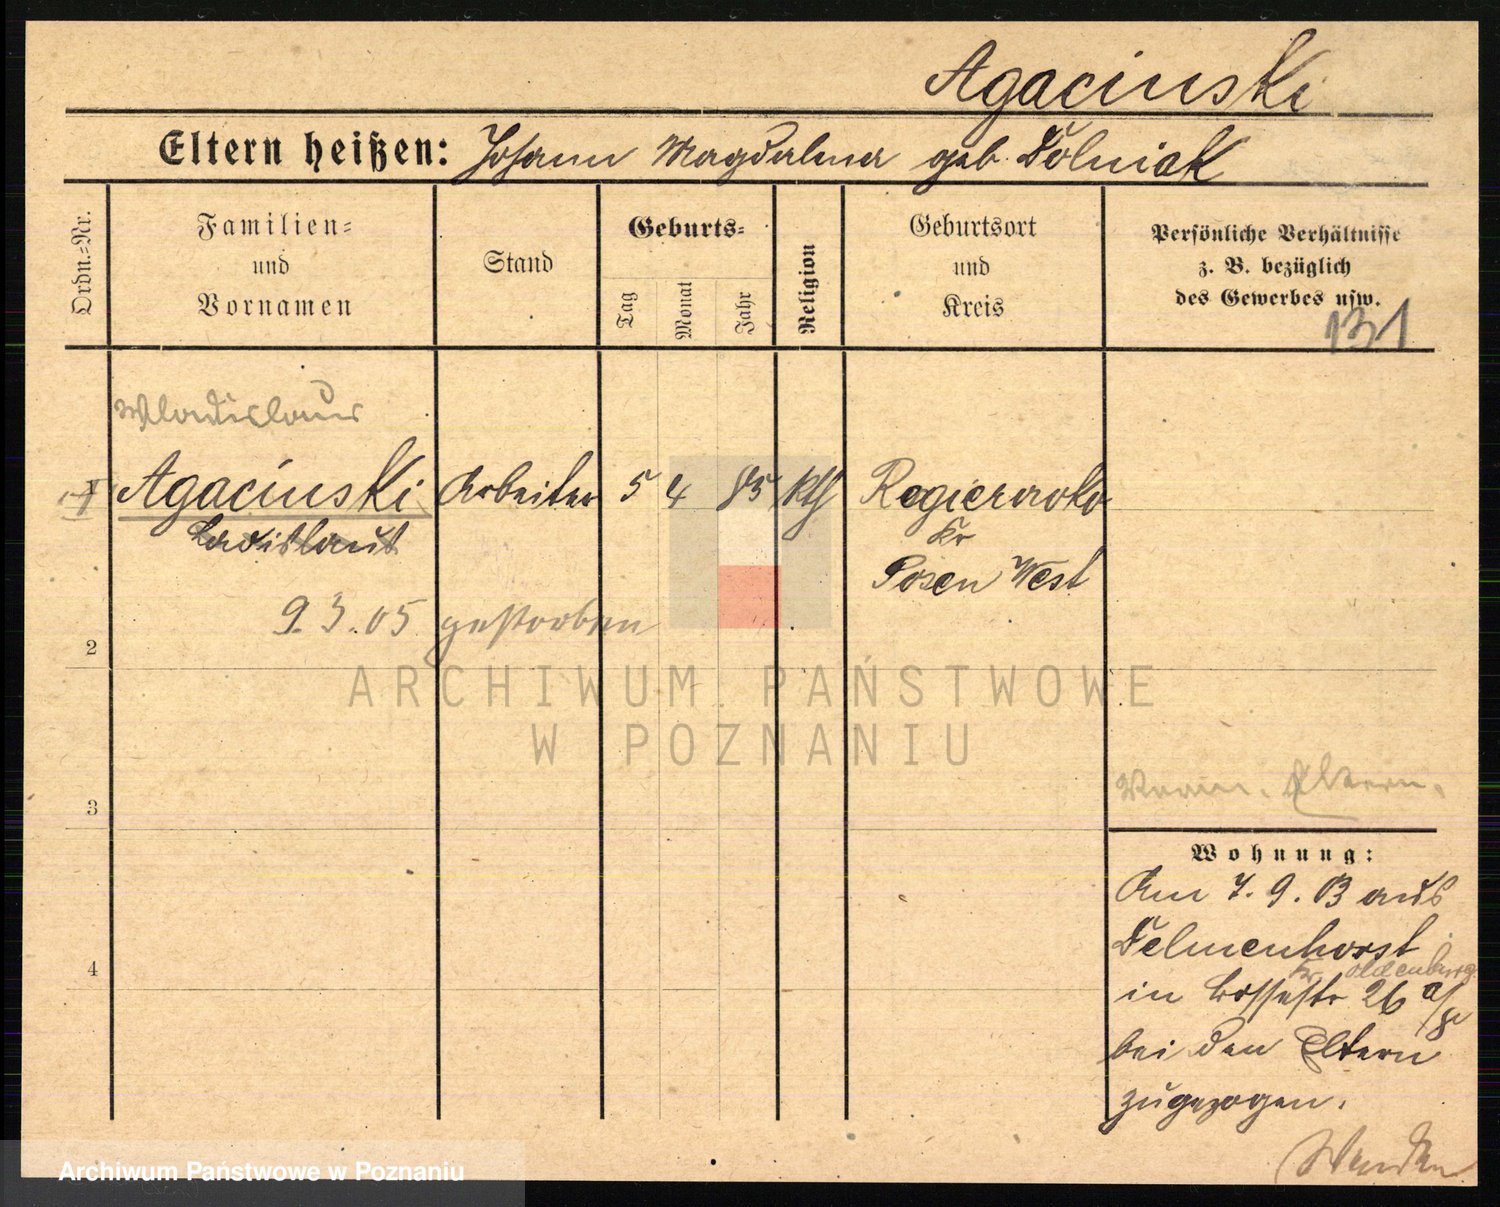 Agacinski
Eltern heißen: Johann Magdalena geb. Dolniak
Ordn.=Nr.
Familien=
und
Vornamen
Stand
Geburts=
Tag
Monat
Jahr
Religion
Geburtsort
und
Kreis
Persönliche Verhältnisse
z. B. bezüglich
des Gewerbes usw.
131
Wladislaus
1 Agacinski Arbeiter 5 4 85 kth
Ladislaus
Kr
Posen West
9.3.05 gestorben
2
ARCHIWUM PAŃSTWOWE
W POZNANIU
3
Eltern.
Wohnung:
Am 7. 9. 03 aus
Delmenhorst
Kr Oldenburg
in 26
bei den Eltern
zugezogen.
4
Archiwum Państwowe w Poznaniu